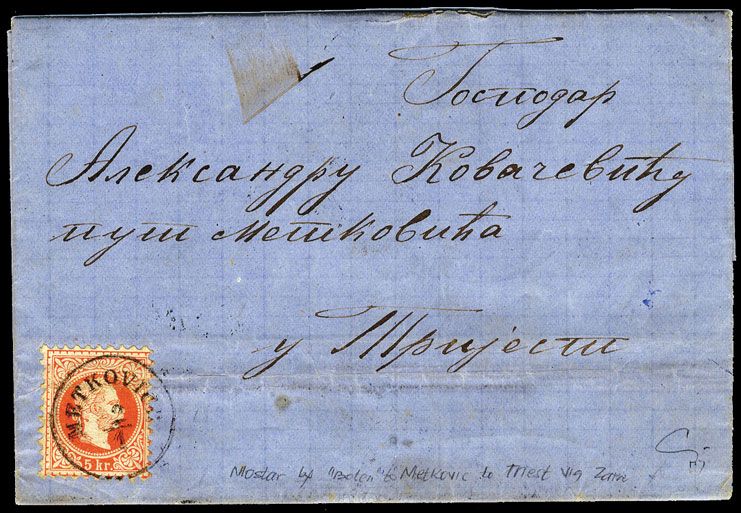 Господар
Александру Ковачевићу
пут Метковића
у Тријести
METKOVIC
5 kr.
Mostar by "Boten" to Metkovic to Triest via Zara